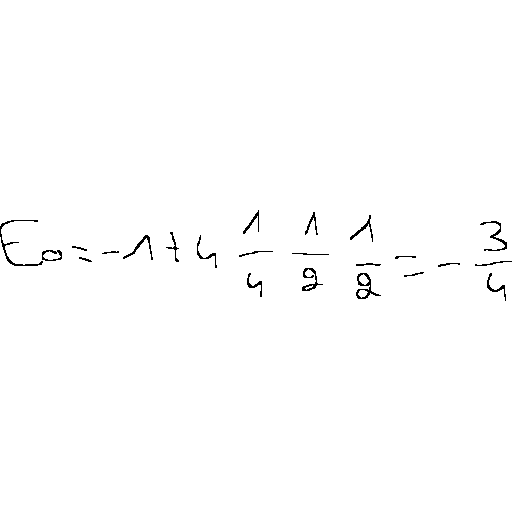 E_0 = -1 + 4 \frac{1}{4} \frac{1}{2} \frac{1}{2} = -\frac{3}{4}